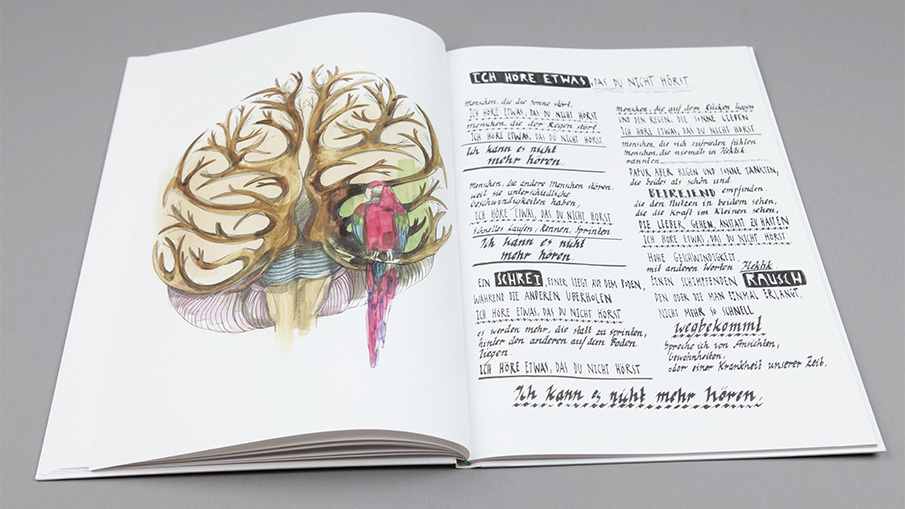 ICH HÖRE ETWAS, DAS DU NICHT HÖRST
Menschen, die die Sonne stört,
ICH HÖRE ETWAS, DAS DU NICHT HÖRST
menschen, die der Regen stört.
ICH HÖRE ETWAS, DAS DU NICHT HÖRST
Ich kann es nicht
mehr hören.
Menschen, die andere Menschen stören,
weil sie unterschiedliche
Geschwindigkeiten haben,
ICH HÖRE ETWAS, DAS DU NICHT HÖRST
schnelles Laufen, Rennen, Sprinten
Ich kann es nicht
mehr hören.
EIN SCHREI, EINER LIEGT AUF DEM BODEN,
WÄHREND DIE ANDEREN ÜBERHOLEN
ICH HÖRE ETWAS, DAS DU NICHT HÖRST
es werden mehr, die statt zu sprinten,
hinter den anderen auf dem Boden
liegen.
ICH HÖRE ETWAS, DAS DU NICHT HÖRST
Menschen, die auf dem Rücken lagen
UND DEN REGEN, DIE SONNE LIEBEN
ICH HÖRE ETWAS, DAS DU NICHT HÖRST
menschen, die sich zufrieden fühlen
Menschen, die niemals in Hektik
rannten.
DAFÜR ABER REGEN UND SONNE TANKTEN,
die beides als schön und
BEFREIEND empfinden.
die den Nutzen in beidem sehen,
die die Kraft im Kleinen sehen,
DIE LIEBER GEHEN, ANSTATT ZU HASTEN
ICH HÖRE ETWAS, DAS DU NICHT HÖRST
HOHE GESCHWINDIGKEIT,
mit anderen Worten Hektik
EINEN SCHIMPFENDEN RAUSCH
DEN DER DIE MAN EINMAL ERLANGT,
NICHT MEHR SO SCHNELL
wegbekommt
Spreche ich von Ansichten,
Gewohnheiten,
oder einer Krankheit unserer Zeit.
Ich kann es nicht mehr hören.